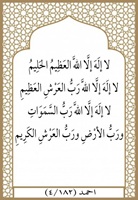 لا إِلٰهَ إِلَّا اللَّهُ الْعَظِيمُ الْحَلِيمُ
لا إِلٰهَ إِلَّا اللَّهُ رَبُّ الْعَرْشِ الْعَظِيمِ
لا إِلٰهَ إِلَّا اللَّهُ رَبُّ السَّمَوَاتِ
وَرَبُّ الْأَرْضِ وَرَبُّ الْعَرْشِ الْكَرِيمِ
احمد (٤/١٨٢)